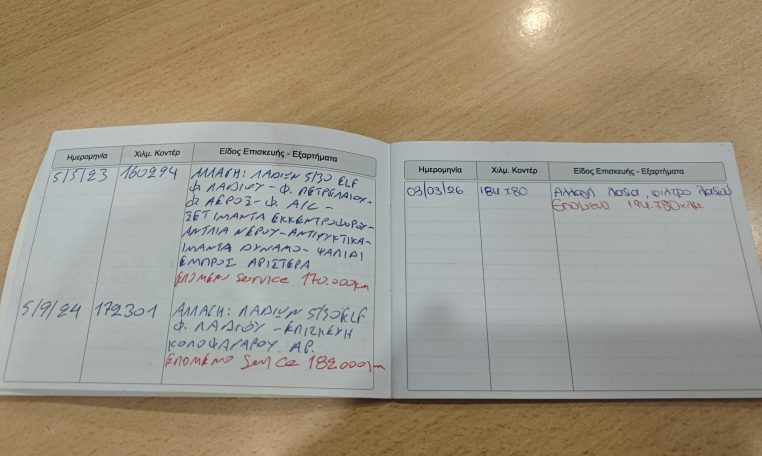 Ημερομηνία Χιλμ. Κοντέρ Είδος Επισκευής - Εξαρτήματα
5/5/23 160294 ΑΛΛΑΓΗ: ΛΑΔΙΩΝ 5/30 ELF
Φ. ΛΑΔΙΟΥ - Φ. ΠΕΤΡΕΛΑΙΟΥ-
Φ. ΑΕΡΟΣ - Φ. A/C -
ΣΕΤ ΙΜΑΝΤΑ ΕΚΚΕΝΤΡΟΦΟΡΟΥ-
ΑΝΤΛΙΑ ΝΕΡΟΥ - ΑΝΤΙΨΥΚΤΙΚΑ-
ΙΜΑΝΤΑ ΔΥΝΑΜΟ - ΨΑΛΙΔΙ
ΕΜΠΡΟΣ ΑΡΙΣΤΕΡΑ
ΕΠΟΜΕΝΟ Service 170.000km
5/9/24 172301 ΑΛΛΑΓΗ: ΛΑΔΙΩΝ 5/30 ELF
Φ. ΛΑΔΙΟΥ - ΕΠΙΣΚΕΥΗ
ΚΟΛΟΦΑΝΑΡΟΥ ΑΡ.
ΕΠΟΜΕΝΟ Service 182000km
Ημερομηνία Χιλμ. Κοντέρ Είδος Επισκευής - Εξαρτήματα
03/03/26 184.780 Αλλαγή λαδια, φιλτρο λαδιου
Επομενο 194.780 χλμ.